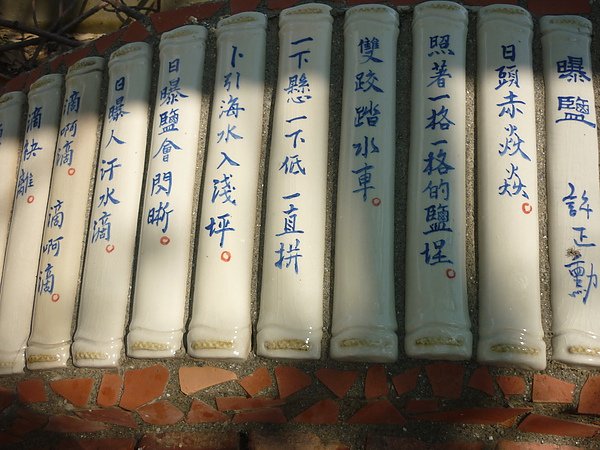 曝鹽 許正勳
日頭赤焱焱。
照著一格一格的鹽埕。
雙跤踏水車。
一下懸一下低 一直拼
卜引海水入淺坪。
日曝鹽會閃晰。
日曝人汗水滴。
滴啊滴。滴啊滴。
滴快離。